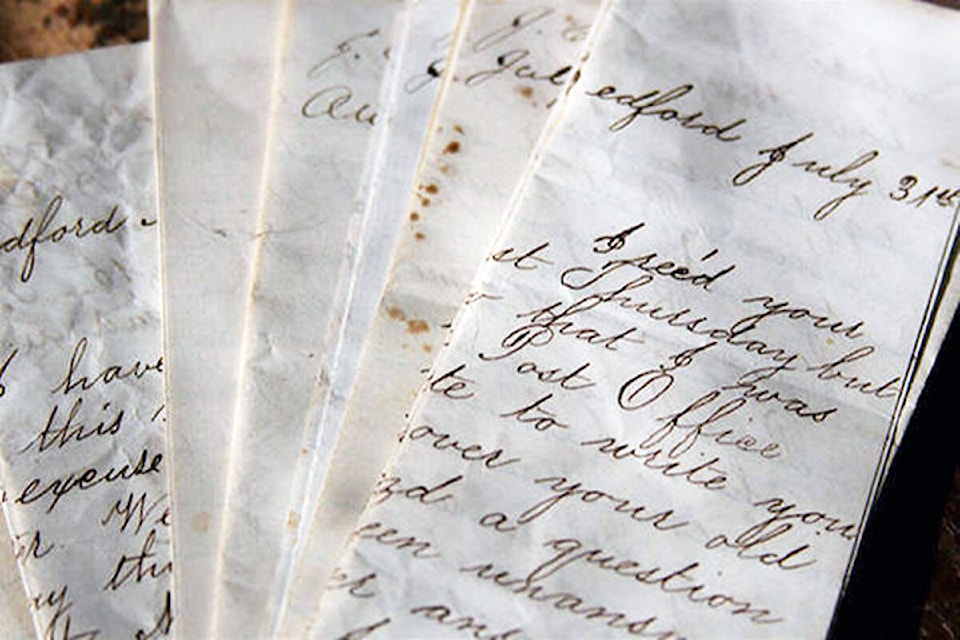 dford
have
this
excuse
We
thi
Au
Jul
edford July 31st
I rec'd your
st Thursday but
that I was
Post Office
te to write you
over your old
nd a question
een unans
er ans